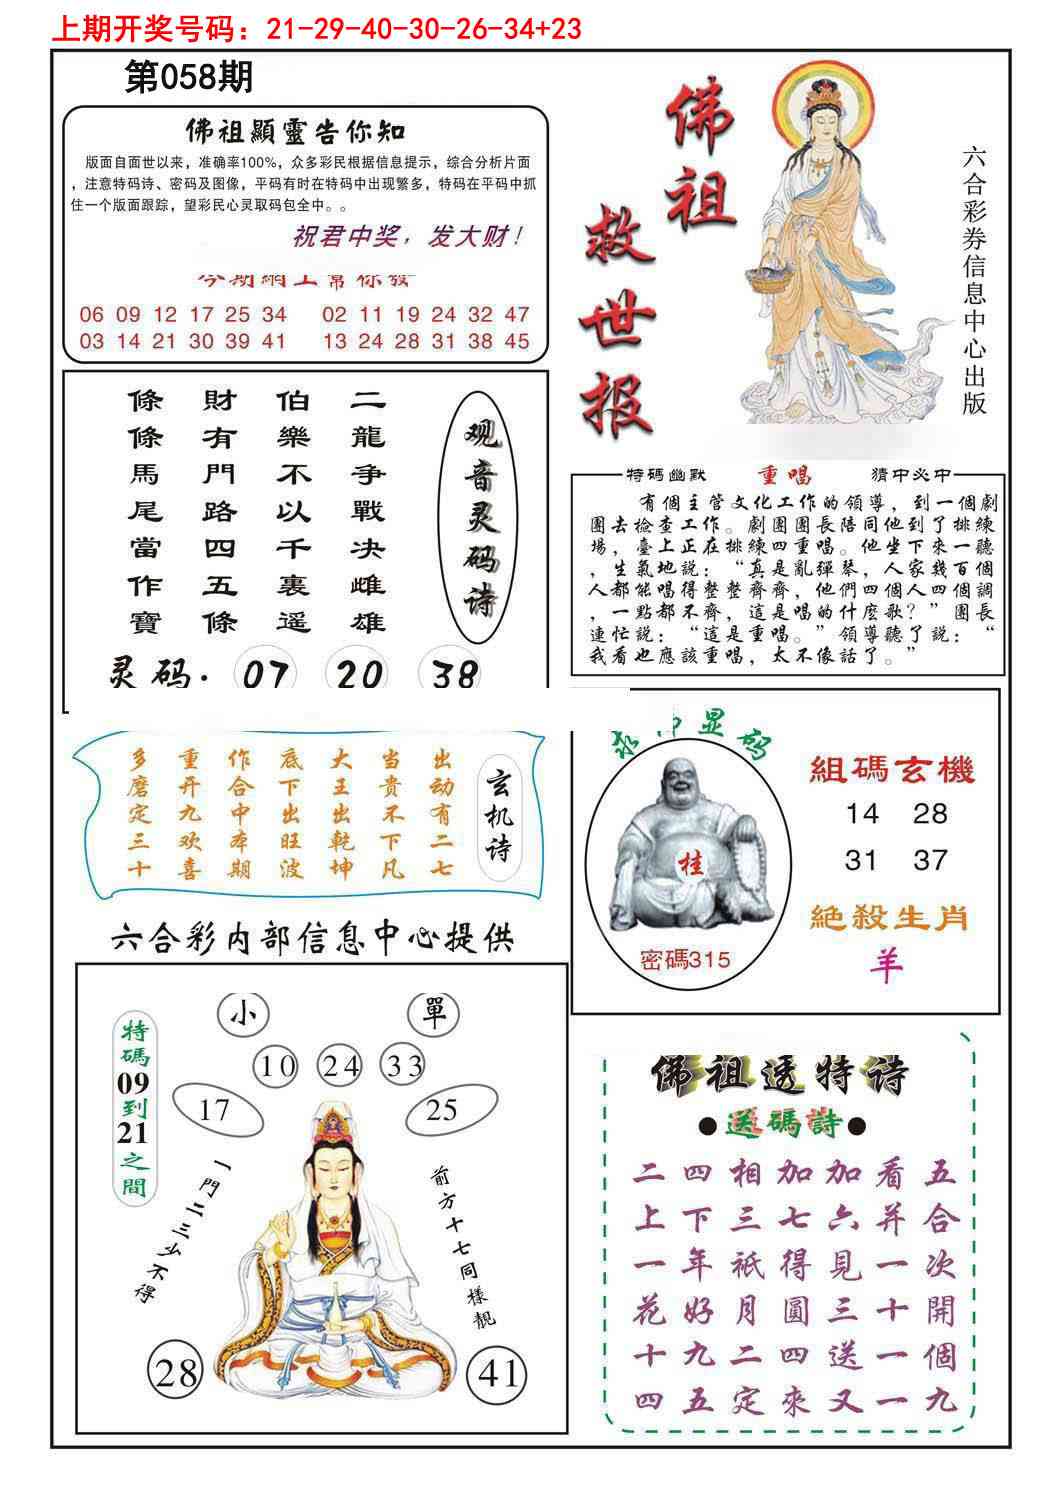 上期开奖号码：21-29-40-30-26-34+23
第058期
佛祖顯靈告你知
版面自面世以来，准确率100%，众多彩民根据信息提示，综合分析片面
，注意特码诗、密码及图像，平码有时在特码中出现繁多，特码在平码中抓
住一个版面跟踪，望彩民心灵取码包全中。。
祝君中奖，发大财！
06 09 12 17 25 34 02 11 19 24 32 47
03 14 21 30 39 41 13 24 28 31 38 45
佛祖
救世报
六合彩券信息中心出版
观音灵码诗
二龍争戰决雌雄
伯樂不以千裏遥
財有門路四五條
條條馬尾當作寶
灵码. 07 20 38
特碼幽默 重唱 猜中必中
有個主管文化工作的領導，到一個劇
團去檢查工作。劇團團長陪同他到了排練
場，臺上正在排練四重唱。他坐下來一聽
，生氣地説：“真是亂彈琴，人家幾百個
人都能唱得整整齊齊，他們四個人四個調
，一點都不齊，這是唱的什麽歌？”團長
連忙説：“這是重唱。”領導聽了説：“
我看也應該重唱，太不像話了。”
玄机诗
出动有二七
当贵不下凡
大王出乾坤
底下出旺波
作合中本期
重开九欢喜
多磨定三十
显码
桂
密碼315
組碼玄機
14 28
31 37
絕殺生肖
羊
六合彩内部信息中心提供
特碼09到21之間
小 單
10 24 33
17 25
一門二三少不得
前方十七同樣靚
28 41
佛祖透特诗
●送碼詩●
五合次開個九
看并一十一一
加六見三送又
加七得圓四來
相三祇月二定
四下年好九五
二上一花十四